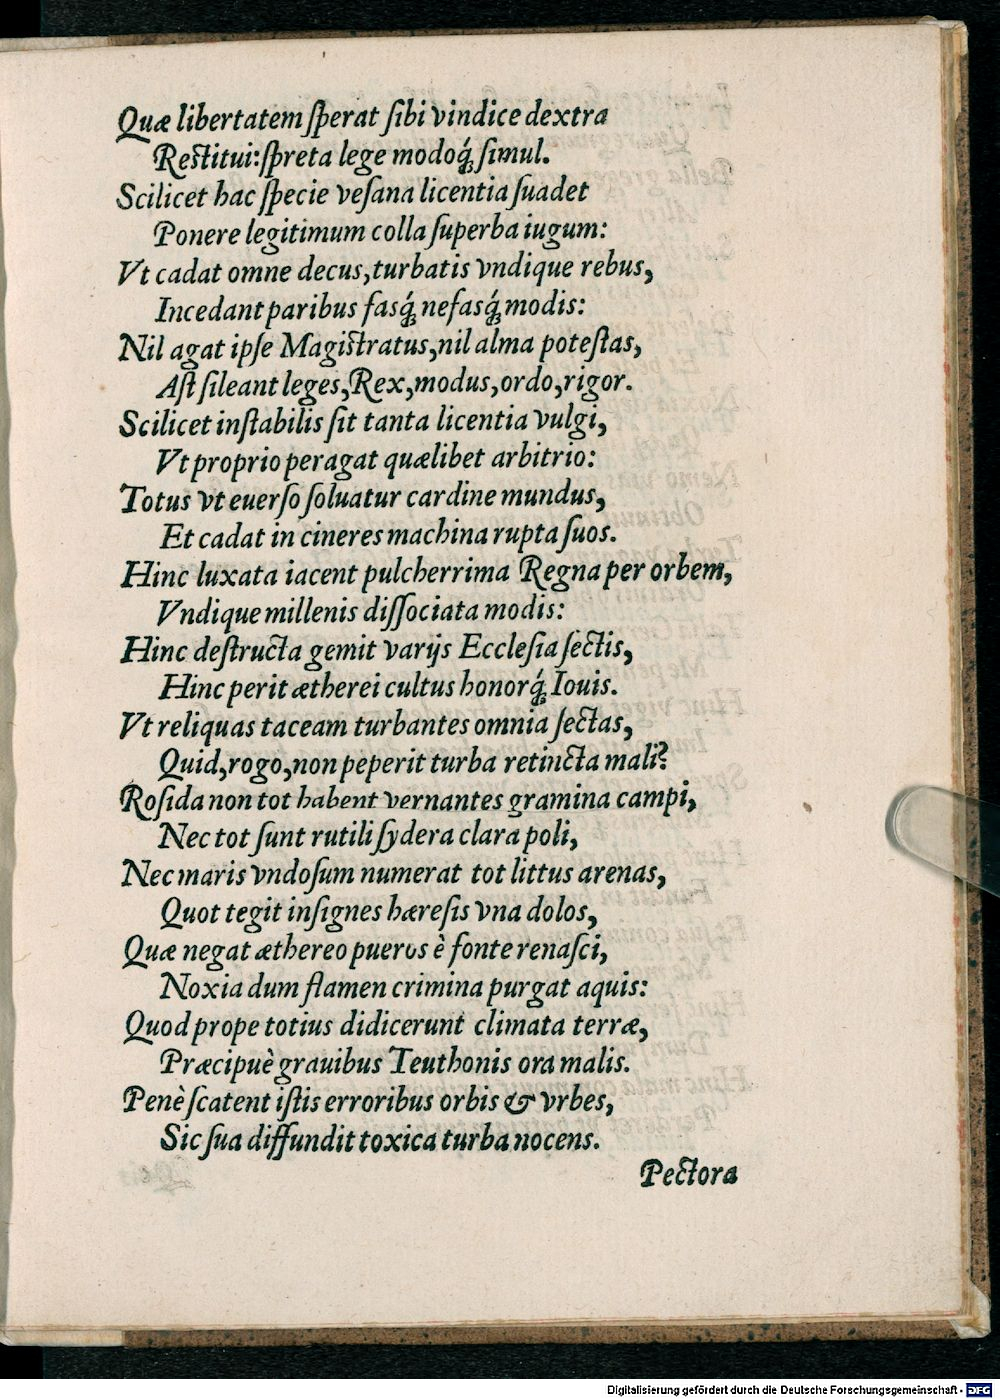 Quæ libertatem ſperat ſibi vindice dextra
Reſtitui: ſpreta lege modoq́ꝫ ſimul.
Scilicet hac ſpecie veſana licentia ſuadet
Ponere legitimum colla ſuperba iugum:
Vt cadat omne decus, turbatis vndique rebus,
Incedant paribus fasq́ꝫ nefasq́ꝫ modis:
Nil agat ipſe Magiſtratus, nil alma poteſtas,
Aſt ſileant leges, Rex, modus, ordo, rigor.
Scilicet inſtabilis ſit tanta licentia vulgi,
Vt proprio peragat quælibet arbitrio:
Totus vt euerſo ſoluatur cardine mundus,
Et cadat in cineres machina rupta ſuos.
Hinc luxata iacent pulcherrima Regna per orbem,
Vndique millenis diſſociata modis:
Hinc deſtructa gemit varijs Eccleſia ſectis,
Hinc perit ætherei cultus honorq́ꝫ Iouis.
Vt reliquas taceam turbantes omnia ſectas,
Quid, rogo, non peperit turba retincta mali?
Roſida non tot habent vernantes gramina campi,
Nec tot ſunt rutili ſydera clara poli,
Nec maris vndoſum numerat tot littus arenas,
Quot tegit inſignes hæreſis vna dolos,
Quæ negat æthereo pueros è fonte renaſci,
Noxia dum flamen crimina purgat aquis:
Quod prope totius didicerunt climata terræ,
Præcipuè grauibus Teuthonis ora malis.
Penè ſcatent iſtis erroribus orbis & vrbes,
Sic ſua diffundit toxica turba nocens.
Pectora
Digitalisierung gefördert durch die Deutsche Forschungsgemeinschaft - DFG